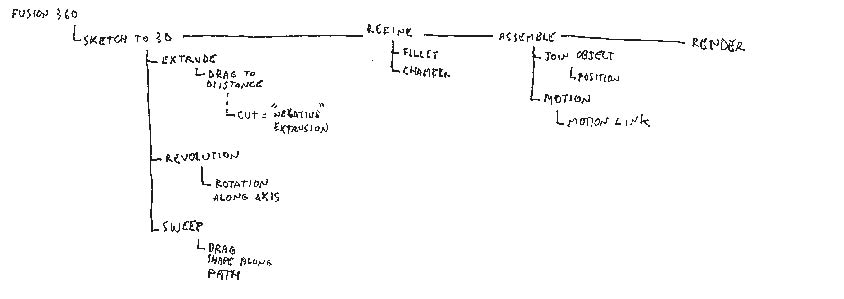 FUSION 360
SKETCH TO 3D
EXTRUDE
DRAG TO
DISTANCE
CUT = "NEGATIVE"
EXTRUSION
REVOLUTION
ROTATION
ALONG AXIS
SWEEP
DRAG
SHAPE ALONG
PATH
REFINE
FILLET
CHAMFER
ASSEMBLE
JOIN OBJECT
POSITION
MOTION
MOTION LINK
RENDER